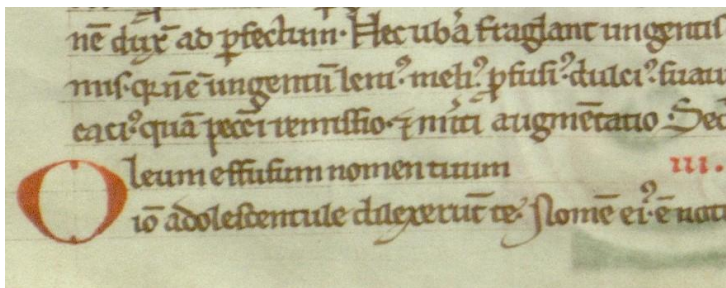 nē dux̄ ad p̄fectum. Hec ub̾a fraglant ungenti
mis. q̄ nē ē ungentū leni᾿. meli᾿. p̄fusi᾿. dulci᾿. suaui
caci᾿. quā pecc̄i remissio. ⁊ m̾iti augmētatio. Sec
Oleum effusum nomen tuum iii.
iō adolescentule dilexerūt te. Nomē ei᾿. ē not